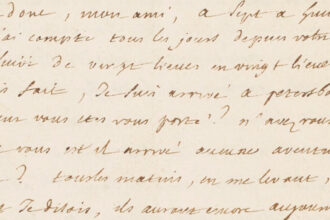 donc, mon ami, a sept a huit
ai compté tous les jours depuis votre
suivi de vingt lieues en vingt lieues
is fait, Je suis arrivé a petersbo
vous etes vous porté? n'avez vous
vous est il arrivé aucune aventur
? tous les matins, en me levant,
et Je disois, ils auront encore aujour